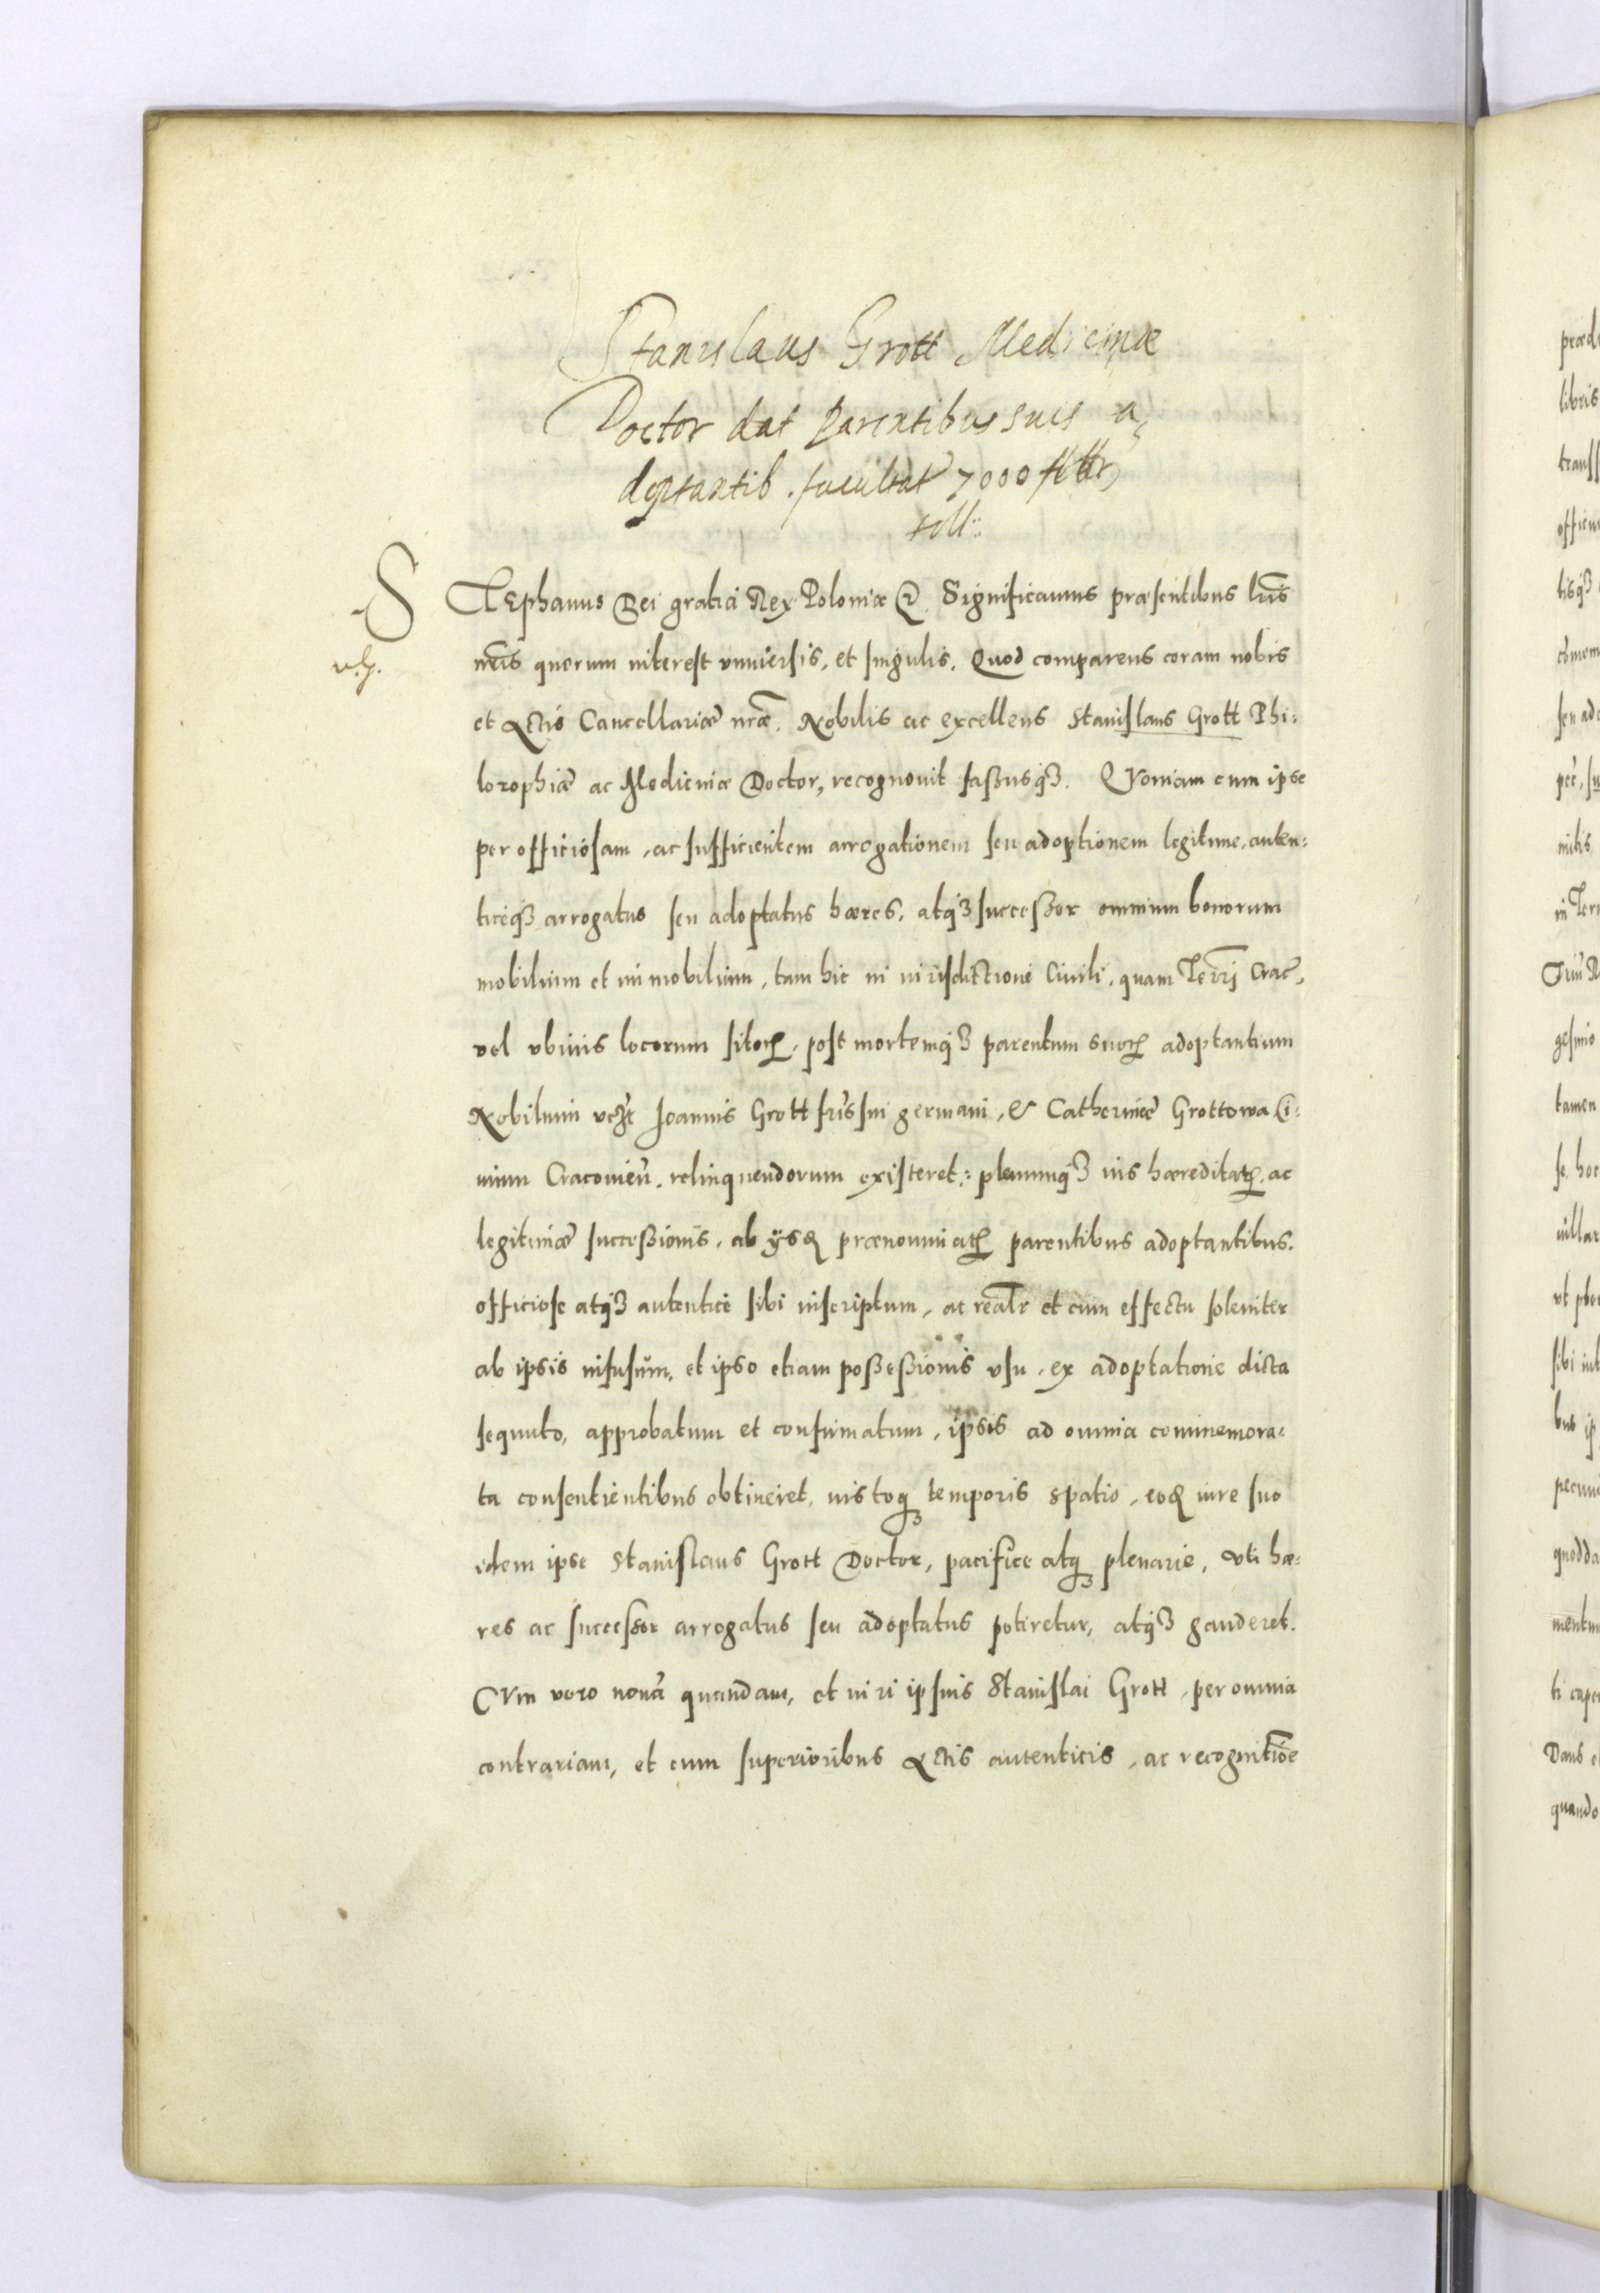 Stanislaus Grott Medicinæ
Doctor dat parentibus suis a,
doptantib. facultat 7000
toll:
STEphanus Dei gratia Rex Poloniæ &. Significamus præsentibus lr̃is
nr̃is quorum interest vniuersis, et singulis. Quod comparens coram nobis
et Actis Cancellariæ nr̃æ. Nobilis ac excellens Stanislaus Grott Phi:
lozophiæ ac Medicinæ Doctor, recognouit fassusq3. QVoniam cum ipse
per officiosam, ac sufficientem arrogationem seu adoptionem legitime, auten:
ticeq3 arrogatus seu adoptatus hæres, atq3 successor omnium bonorum
mobilium et immobilium, tam hic in iurisdictione Ciuili, quam Terrĩ Crac̃,
vel vbiuis locorum sitoꝝ, post mortemq3 parentum suoꝝ adoptantium
Nobilium vcz̃t Joannis Grott fr̃is sui germani, & Catherinæ Grottowa Ci:
uium Cracouieñ. relinquendorum existeret: plenumq3 ius hæreditatꝝ, ac
legitimæ successionis, ab ysꝗ prænominatꝝ parentibus adoptantibus.
officiose atq3 autentice sibi inscriptum, ac realr̃ et cum effectu soleniter
ab ipsis infusum, et ipso etiam possessionis vsu, ex adoptatione dicta
sequuto, approbatum et confirmatum, ipsis ad omnia commemora:
ta consentientibus obtineret, iustoq3 temporis spatio, eoꝗ iure suo
idem ipse Stanislaus Grott Doctor, pacifice atq3 plenarie, vti hæ:
res ac successor arrogatus seu adoptatus potiretur, atq3 gauderet.
CVm vero nouã quandam, et iuri ipsius Stanislai Grott, per omnia
contrariam, et cum superioribus Actis autenticis, ac recognitiõe